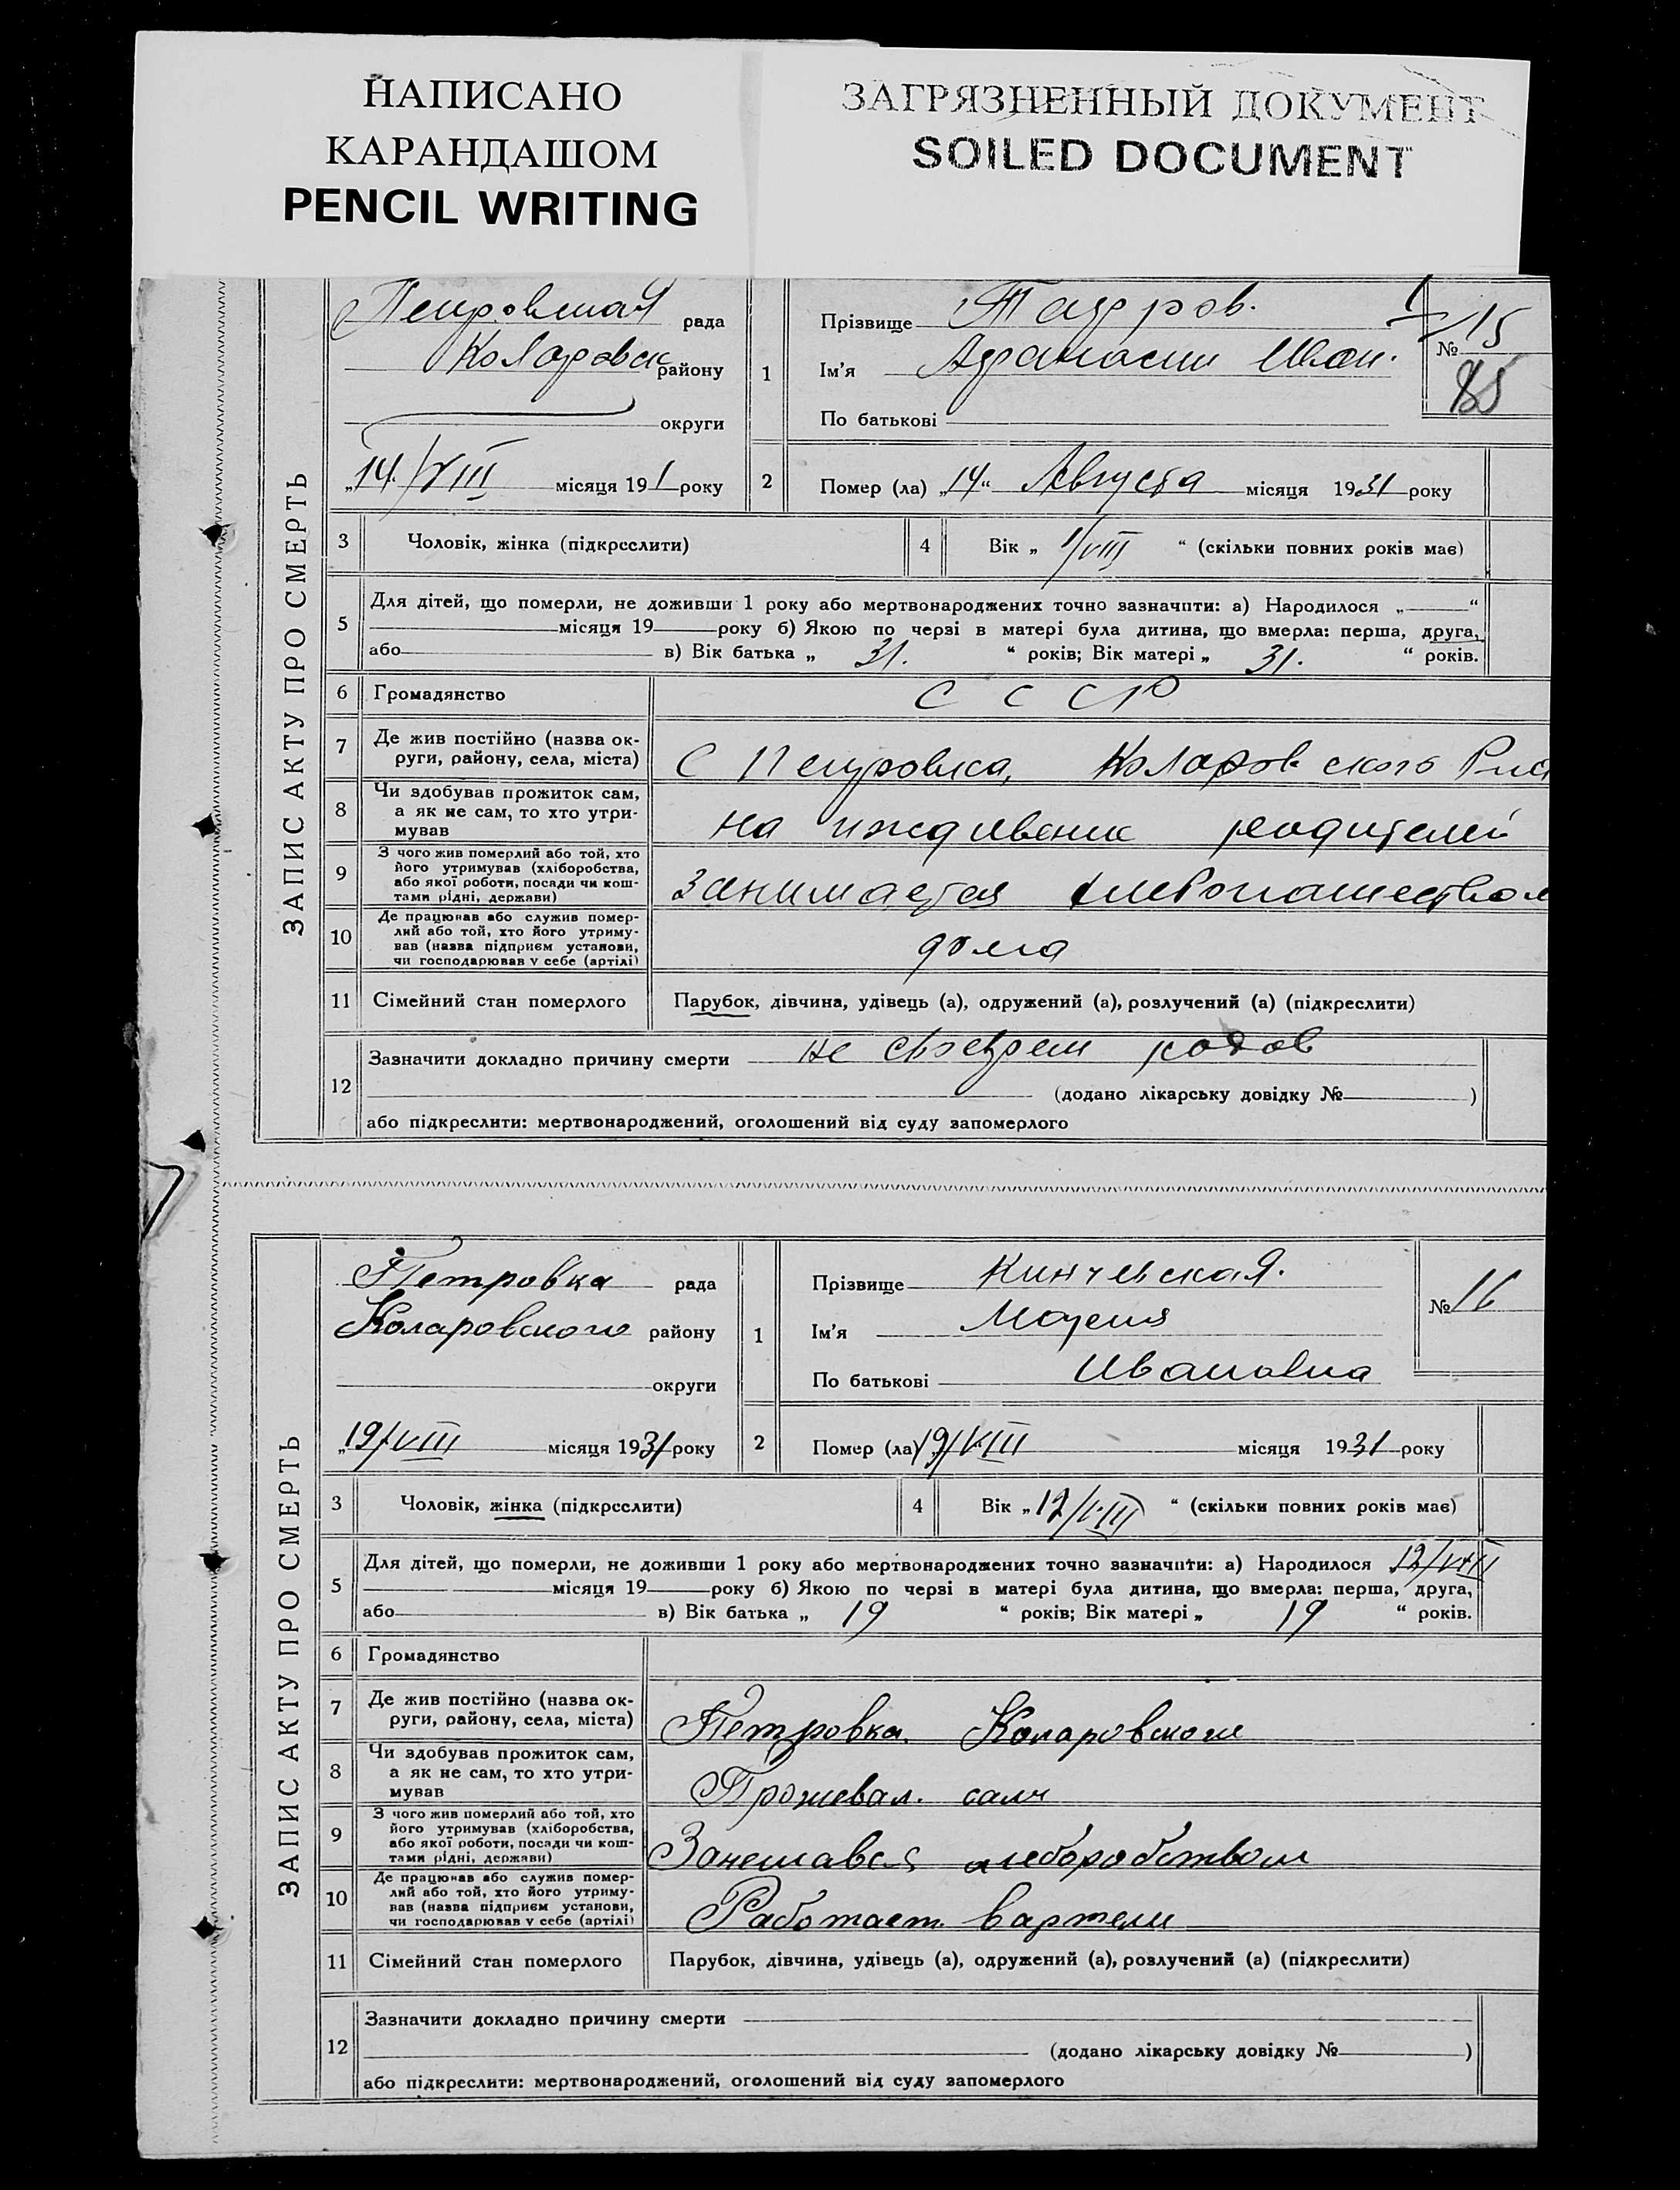 НАПИСАНО
КАРАНДАШОМ
PENCIL WRITING
ЗАГРЯЗНЕННЫЙ ДОКУМЕНТ
SOILED DOCUMENT
ЗАПИС АКТУ ПРО СМЕРТЬ
Петровская рада
Коларовск району
округи
„14./VIII місяця 19 1 року
1
Прізвище
Ім'я Афанасии Иван.
По батькові
№ 15
85
2 Помер (ла) „14“ Августа місяця 1931 року
3 Чоловік, жінка (підкреслити)
4 Вік „ 1/VIII “ (скільки повних років має)
5 Для дітей, що померли, не доживши 1 року або мертвонароджених точно зазначити: а) Народилося „ “
місяця 19 року б) Якою по черзі в матері була дитина, що вмерла: перша, друга,
або в) Вік батька „ 31. “ років; Вік матері „ 31. “ років.
6 Громадянство С С С Р
7 Де жив постійно (назва ок-
руги, району, села, міста) С Петровка, Коларовского
8 Чи здобував прожиток сам,
а як не сам, то хто утри-
мував на иждивение родителей
9 З чого жив померлий або той, хто
його утримував (хліборобства,
або якої роботи, посади чи кош-
тами рідні, держави) Занимается хлебопашеством
10 Де працював або служив помер-
лий або той, хто його утриму-
вав (назва підприєм установи,
чи господарював у себе (артілі) дома
11 Сімейний стан померлого Парубок, дівчина, удівець (а), одружений (а), розлучений (а) (підкреслити)
12 Зазначити докладно причину смерти не родов
(додано лікарську довідку № )
або підкреслити: мертвонароджений, оголошений від суду запомерлого
ЗАПИС АКТУ ПРО СМЕРТЬ
Петровка рада
Коларовского району
округи
„19/VIII місяця 1931 року
1
Прізвище Кинчевская.
Ім'я
По батькові Ивановна
№ 16
2 Помер (ла) „19/VIII місяця 1931 року
3 Чоловік, жінка (підкреслити)
4 Вік „12/VIII “ (скільки повних років має)
5 Для дітей, що померли, не доживши 1 року або мертвонароджених точно зазначити: а) Народилося 12/VIII
місяця 19 року б) Якою по черзі в матері була дитина, що вмерла: перша, друга,
або в) Вік батька „ 19 “ років; Вік матері „ 19 “ років.
6 Громадянство
7 Де жив постійно (назва ок-
руги, району, села, міста) Петровка. Коларовского
8 Чи здобував прожиток сам,
а як не сам, то хто утри-
мував Прожевал. сам
9 З чого жив померлий або той, хто
його утримував (хліборобства,
або якої роботи, посади чи кош-
тами рідні, держави) Занемався хлеборобством
10 Де працював або служив помер-
лий або той, хто його утриму-
вав (назва підприєм установи,
чи господарював у себе (артілі) Работает вартели
11 Сімейний стан померлого Парубок, дівчина, удівець (а), одружений (а), розлучений (а) (підкреслити)
12 Зазначити докладно причину смерти
(додано лікарську довідку № )
або підкреслити: мертвонароджений, оголошений від суду запомерлого